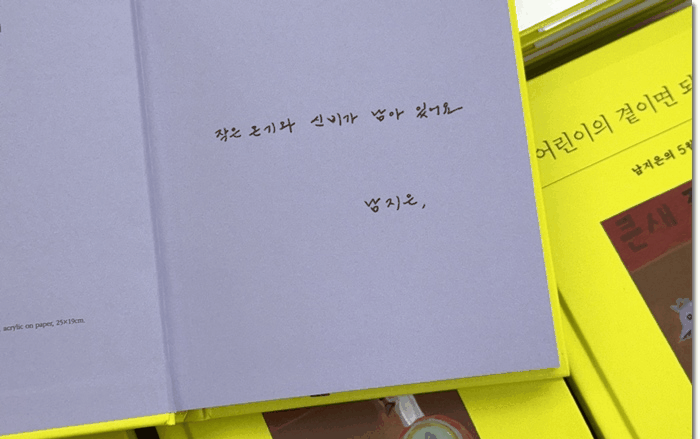 작은 온기와 신비가 남아 있어요
남지은,
acrylic on paper, 25×19cm.
어린이의 곁이면 되
남지은의 5월
큰새